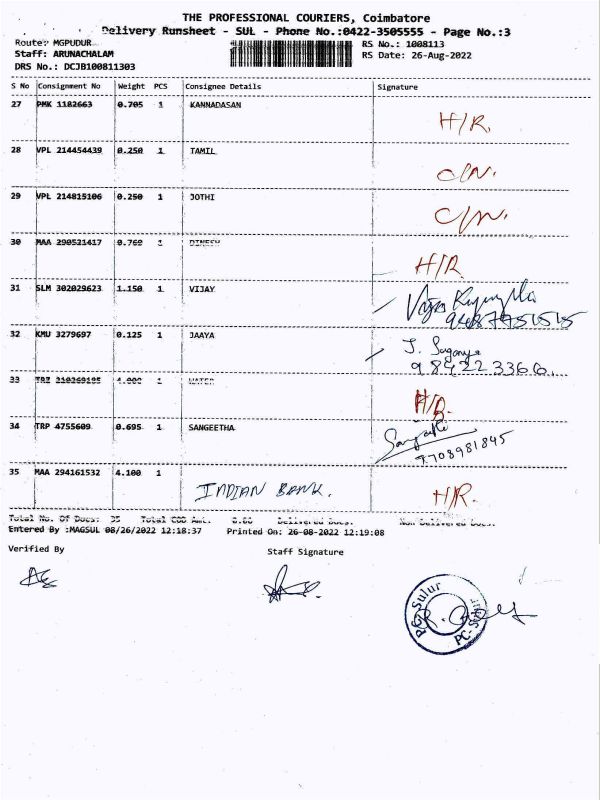 THE PROFESSIONAL COURIERS, Coimbatore
Delivery Runsheet - SUL - Phone No.:0422-3505555 - Page No.:3
Route: MGPUDUR
Staff: ARUNACHALAM
DRS No.: DCJB100811303
RS No.: 1008113
RS Date: 26-Aug-2022
S No Consignment No Weight PCS Consignee Details Signature
27 PMK 1182663 0.705 1 KANNADASAN H/R.
28 VPL 214454439 0.250 1 TAMIL C/N.
29 VPL 214815106 0.250 1 JOTHI C/N.
30 MAA 290521417 0.760 1 DINESH H/R
31 SLM 302029623 1.150 1 VIJAY
32 KMU 3279697 0.125 1 JAAYA J. Suganya
98422 33660
33 TRZ 1 H/R.
34 TRP 4755609 0.695 1 SANGEETHA
7708981845
35 MAA 294161532 4.100 1 INDIAN BANK. H/R.
Total No. Of Docs: 35 Total COD Amt. 0.00 Delivered Docs. Non Delivered Docs.
Entered By :MAGSUL 08/26/2022 12:18:37 Printed On: 26-08-2022 12:19:08
Verified By Staff Signature
PC-Sulur
PC-Sulur